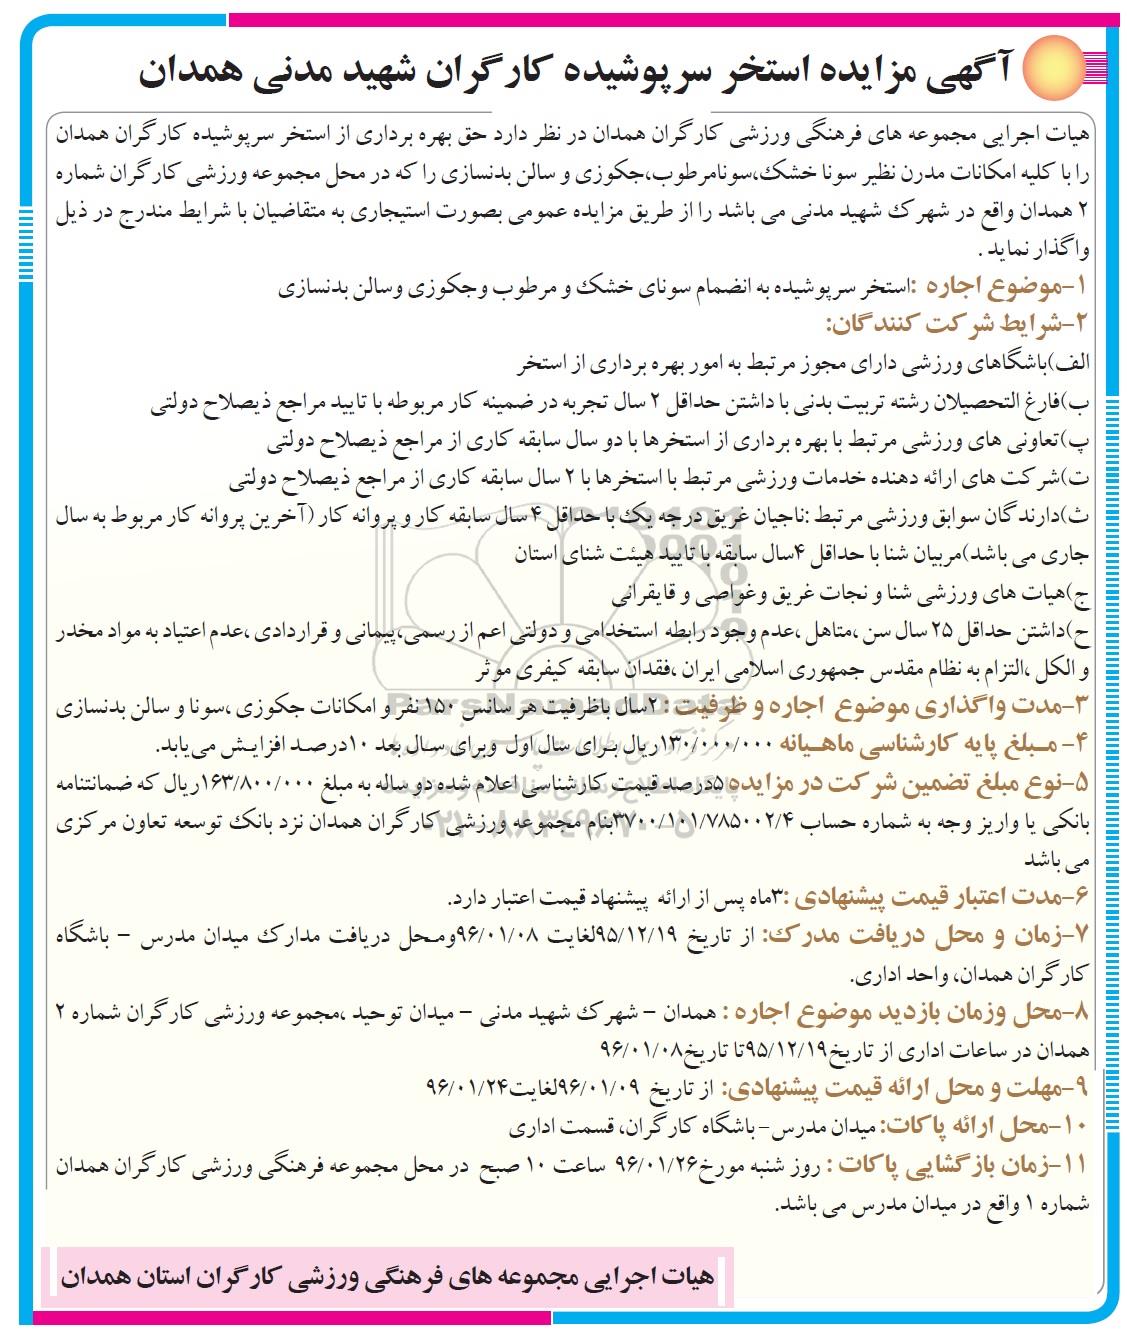 آگهی مزایده استخر سرپوشیده کارگران شهید مدنی همدان
هیات اجرایی مجموعه های فرهنگی ورزشی کارگران همدان در نظر دارد حق بهره برداری از استخر سرپوشیده کارگران همدان
را با کلیه امکانات مدرن نظیر سونا خشک،سونامرطوب،جکوزی و سالن بدنسازی را که در محل مجموعه ورزشی کارگران شماره
۲ همدان واقع در شهرک شهید مدنی می باشد را از طریق مزایده عمومی بصورت استیجاری به متقاضیان با شرایط مندرج در ذیل
واگذار نماید .
۱-موضوع اجاره :استخر سرپوشیده به انضمام سونای خشک و مرطوب وجکوزی وسالن بدنسازی
۲-شرایط شرکت کنندگان:
الف)باشگاهای ورزشی دارای مجوز مرتبط به امور بهره برداری از استخر
ب)فارغ التحصیلان رشته تربیت بدنی با داشتن حداقل ۲ سال تجربه در ضمینه کار مربوطه با تایید مراجع ذیصلاح دولتی
پ)تعاونی های ورزشی مرتبط با بهره برداری از استخرها با دو سال سابقه کاری از مراجع ذیصلاح دولتی
ت)شرکت های ارائه دهنده خدمات ورزشی مرتبط با استخرها با ۲ سال سابقه کاری از مراجع ذیصلاح دولتی
ث)دارندگان سوابق ورزشی مرتبط :ناجیان غریق درجه یک با حداقل ۴ سال سابقه کار و پروانه کار (آخرین پروانه کار مربوط به سال
جاری می باشد)مربیان شنا با حداقل ۴سال سابقه با تایید هیئت شنای استان
ج)هیات های ورزشی شنا و نجات غریق وغواصی و قایقرانی
ح)داشتن حداقل ۲۵ سال سن ،متاهل ،عدم وجود رابطه استخدامی و دولتی اعم از رسمی،پیمانی و قراردادی ،عدم اعتیاد به مواد مخدر
و الکل ،التزام به نظام مقدس جمهوری اسلامی ایران ،فقدان سابقه کیفری موثر
۳-مدت واگذاری موضوع اجاره و ظرفیت : ۲سال باظرفیت هر سانس ۱۵۰ نفر و امکانات جکوزی ،سونا و سالن بدنسازی
۴- مبلغ پایه کارشناسی ماهیانه ۱۳۰/۰۰۰/۰۰۰ریال برای سال اول وبرای سال بعد ۱۰درصد افزایش می‌یابد.
۵-نوع مبلغ تضمین شرکت در مزایده ۵درصد قیمت کارشناسی اعلام شده دو ساله به مبلغ ۱۶۳/۸۰۰/۰۰۰ریال که ضمانتنامه
بانکی یا واریز وجه به شماره حساب ۳۷۰۰/۱۰۱/۷۸۵۰۰۲/۴بنام مجموعه ورزشی کارگران همدان نزد بانک توسعه تعاون مرکزی
می باشد
۶-مدت اعتبار قیمت پیشنهادی :۳ماه پس از ارائه پیشنهاد قیمت اعتبار دارد.
۷-زمان و محل دریافت مدرک: از تاریخ ۹۵/۱۲/۱۹لغایت ۹۶/۰۱/۰۸ومحل دریافت مدارک میدان مدرس – باشگاه
کارگران همدان، واحد اداری.
۸-محل وزمان بازدید موضوع اجاره : همدان – شهرک شهید مدنی – میدان توحید ،مجموعه ورزشی کارگران شماره ۲
همدان در ساعات اداری از تاریخ۹۵/۱۲/۱۹تا تاریخ۹۶/۰۱/۰۸
۹-مهلت و محل ارائه قیمت پیشنهادی: از تاریخ ۹۶/۰۱/۰۹لغایت۹۶/۰۱/۲۴
۱۰-محل ارائه پاکات: میدان مدرس- باشگاه کارگران، قسمت اداری
۱۱-زمان بازگشایی پاکات : روز شنبه مورخ۹۶/۰۱/۲۶ ساعت ۱۰ صبح در محل مجموعه فرهنگی ورزشی کارگران همدان
شماره ۱ واقع در میدان مدرس می باشد.
هیات اجرایی مجموعه های فرهنگی ورزشی کارگران استان همدان
ParsNamadData
پایگاه اطلاع رسانی مناقصه و مزایده
۰۲۱-۸۸۳۴۹۶۷۰-۵